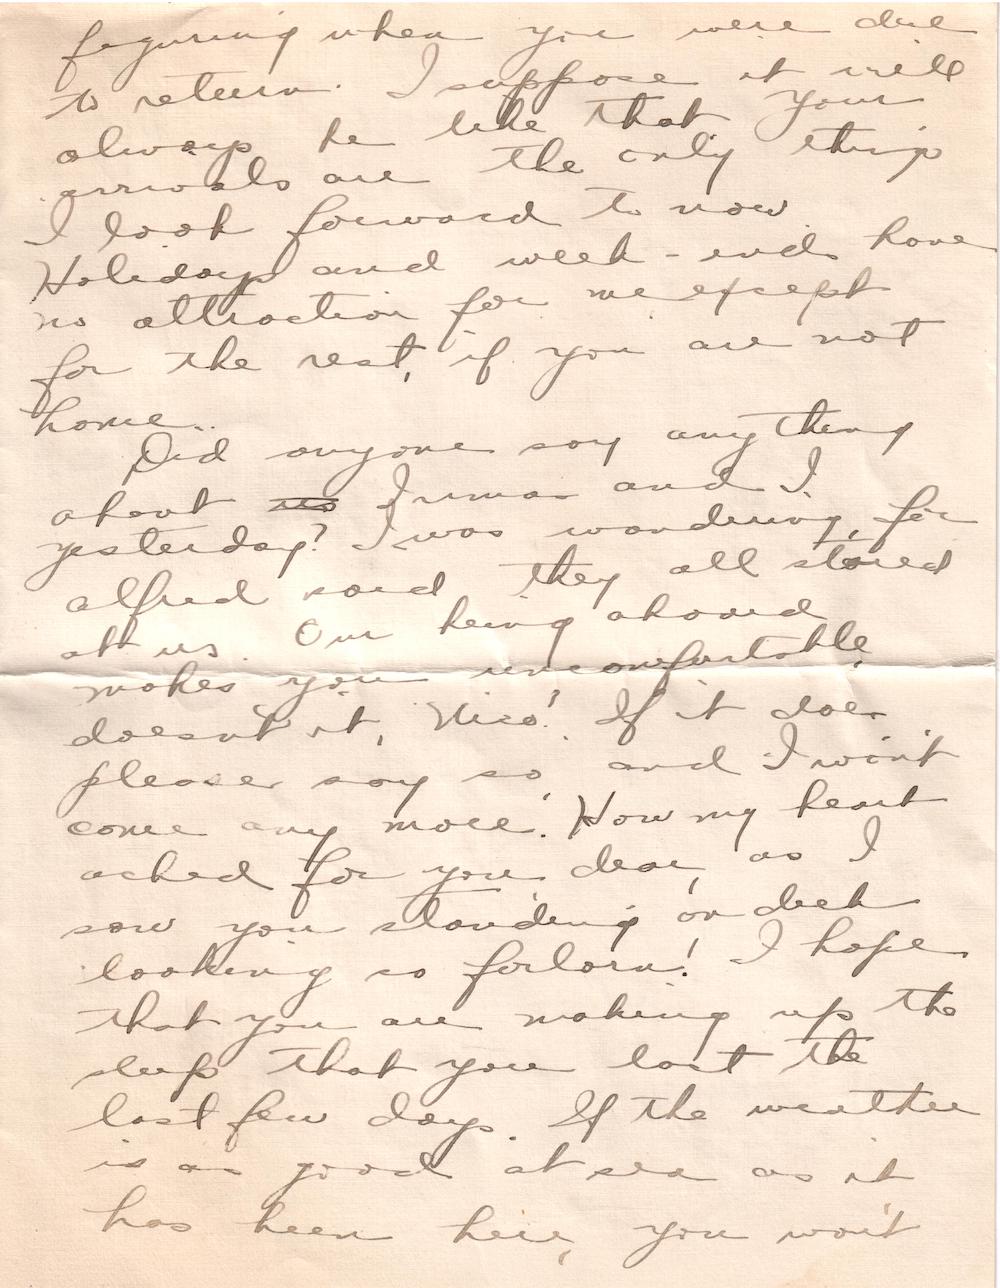 figuring when you were due
to return. I suppose it will
always be like that your
arrivals are the only things
I look forward to now.
Holidays and week-ends have
no attraction for me except
for the rest, if you are not
home.
Did anyone say anything
about us Irma and I
yesterday? I was wondering, for
Alfred said they all stared
at us. Our being aboard
makes you uncomfortable,
doesn't it, Nico? If it does
please say so, and I won't
come any more. How my heart
ached for you dear, as I
saw you standing on deck
looking so forlorn! I hope
that you are making up the
sleep that you lost the
last few days. If the weather
is as good at sea as it
has been here, you won't